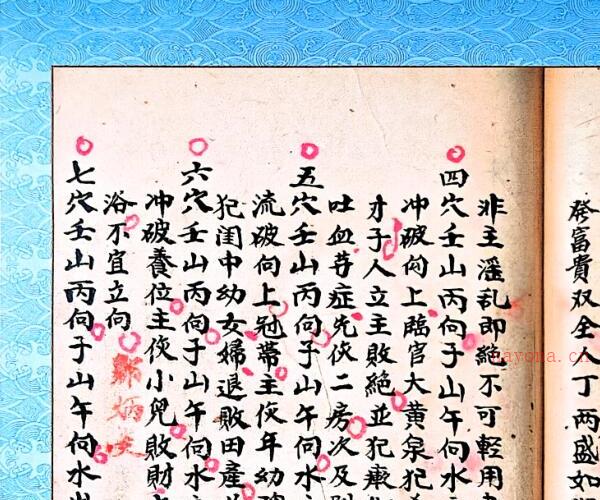 發富貴双全人丁两盛如
非主滛乱即絶不可軽用
四穴壬山丙向子山午向水
冲破向上臨官大黄泉犯
才子人立主敗絶並犯
吐血等症先伤二房次及別
五穴壬山丙向子山午向水
流破向上冠帯主伤年幼
犯闺中幼女婦退敗田産
六穴壬山丙向子山午向水
冲破養位主伤小兒敗財
浴不宜立向
七穴壬山丙向子山午向水出
nayona.cn